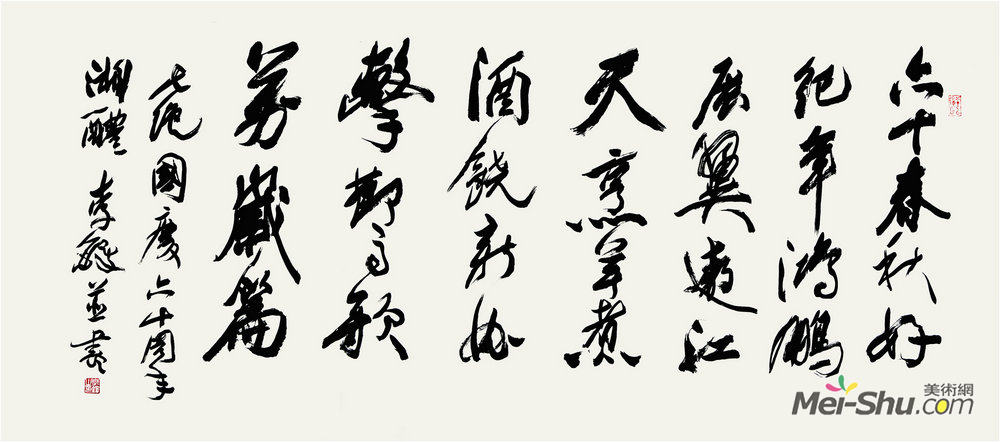 六十春秋好
紀年鴻鵬
展翼遨江
天烹羊煮
酒饒新妙
擊節高歌
萬歲篇
七絕國慶六十周年
湘醴李並書
美術網
Mei-Shu.com